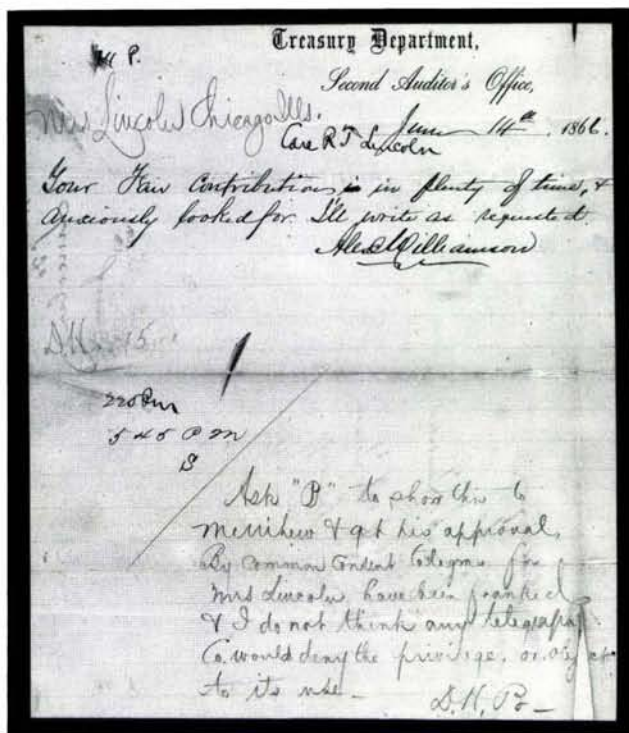 M P.
Treasury Department,
Second Auditor's Office,
Mrs Lincoln Chicago Ills.
June 14th, 1866.
Care R T Lincoln
Your Fair contribution is in plenty of time, &
anxiously looked for. I'll write as requested.
Alex Williamson
D.H. 15
220 Pm
545 P m
S
Ask "B" to show this to
Merrihew & get his approval,
By common consent telegrams for
Mrs Lincoln have been franked
& I do not think any telegraph
Co. would deny the privilege, or object
to its use –
D. H.